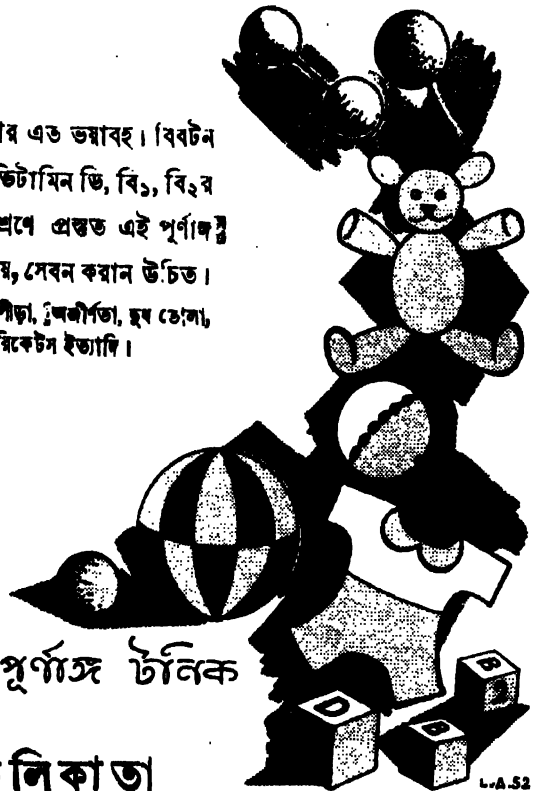 র এত ভয়াবহ। বিবটন
ভিটামিন ডি, বি১, বি২র
শ্রণে প্রস্তুত এই পূর্ণাঙ্গ
য়, সেবন করান উচিত।
পীড়া, অজীর্ণতা, দুধ তোলা,
রিকেটস ইত্যাদি।
পূর্ণাঙ্গ টনিক
লিকাতা
D
B
B
L.A.52